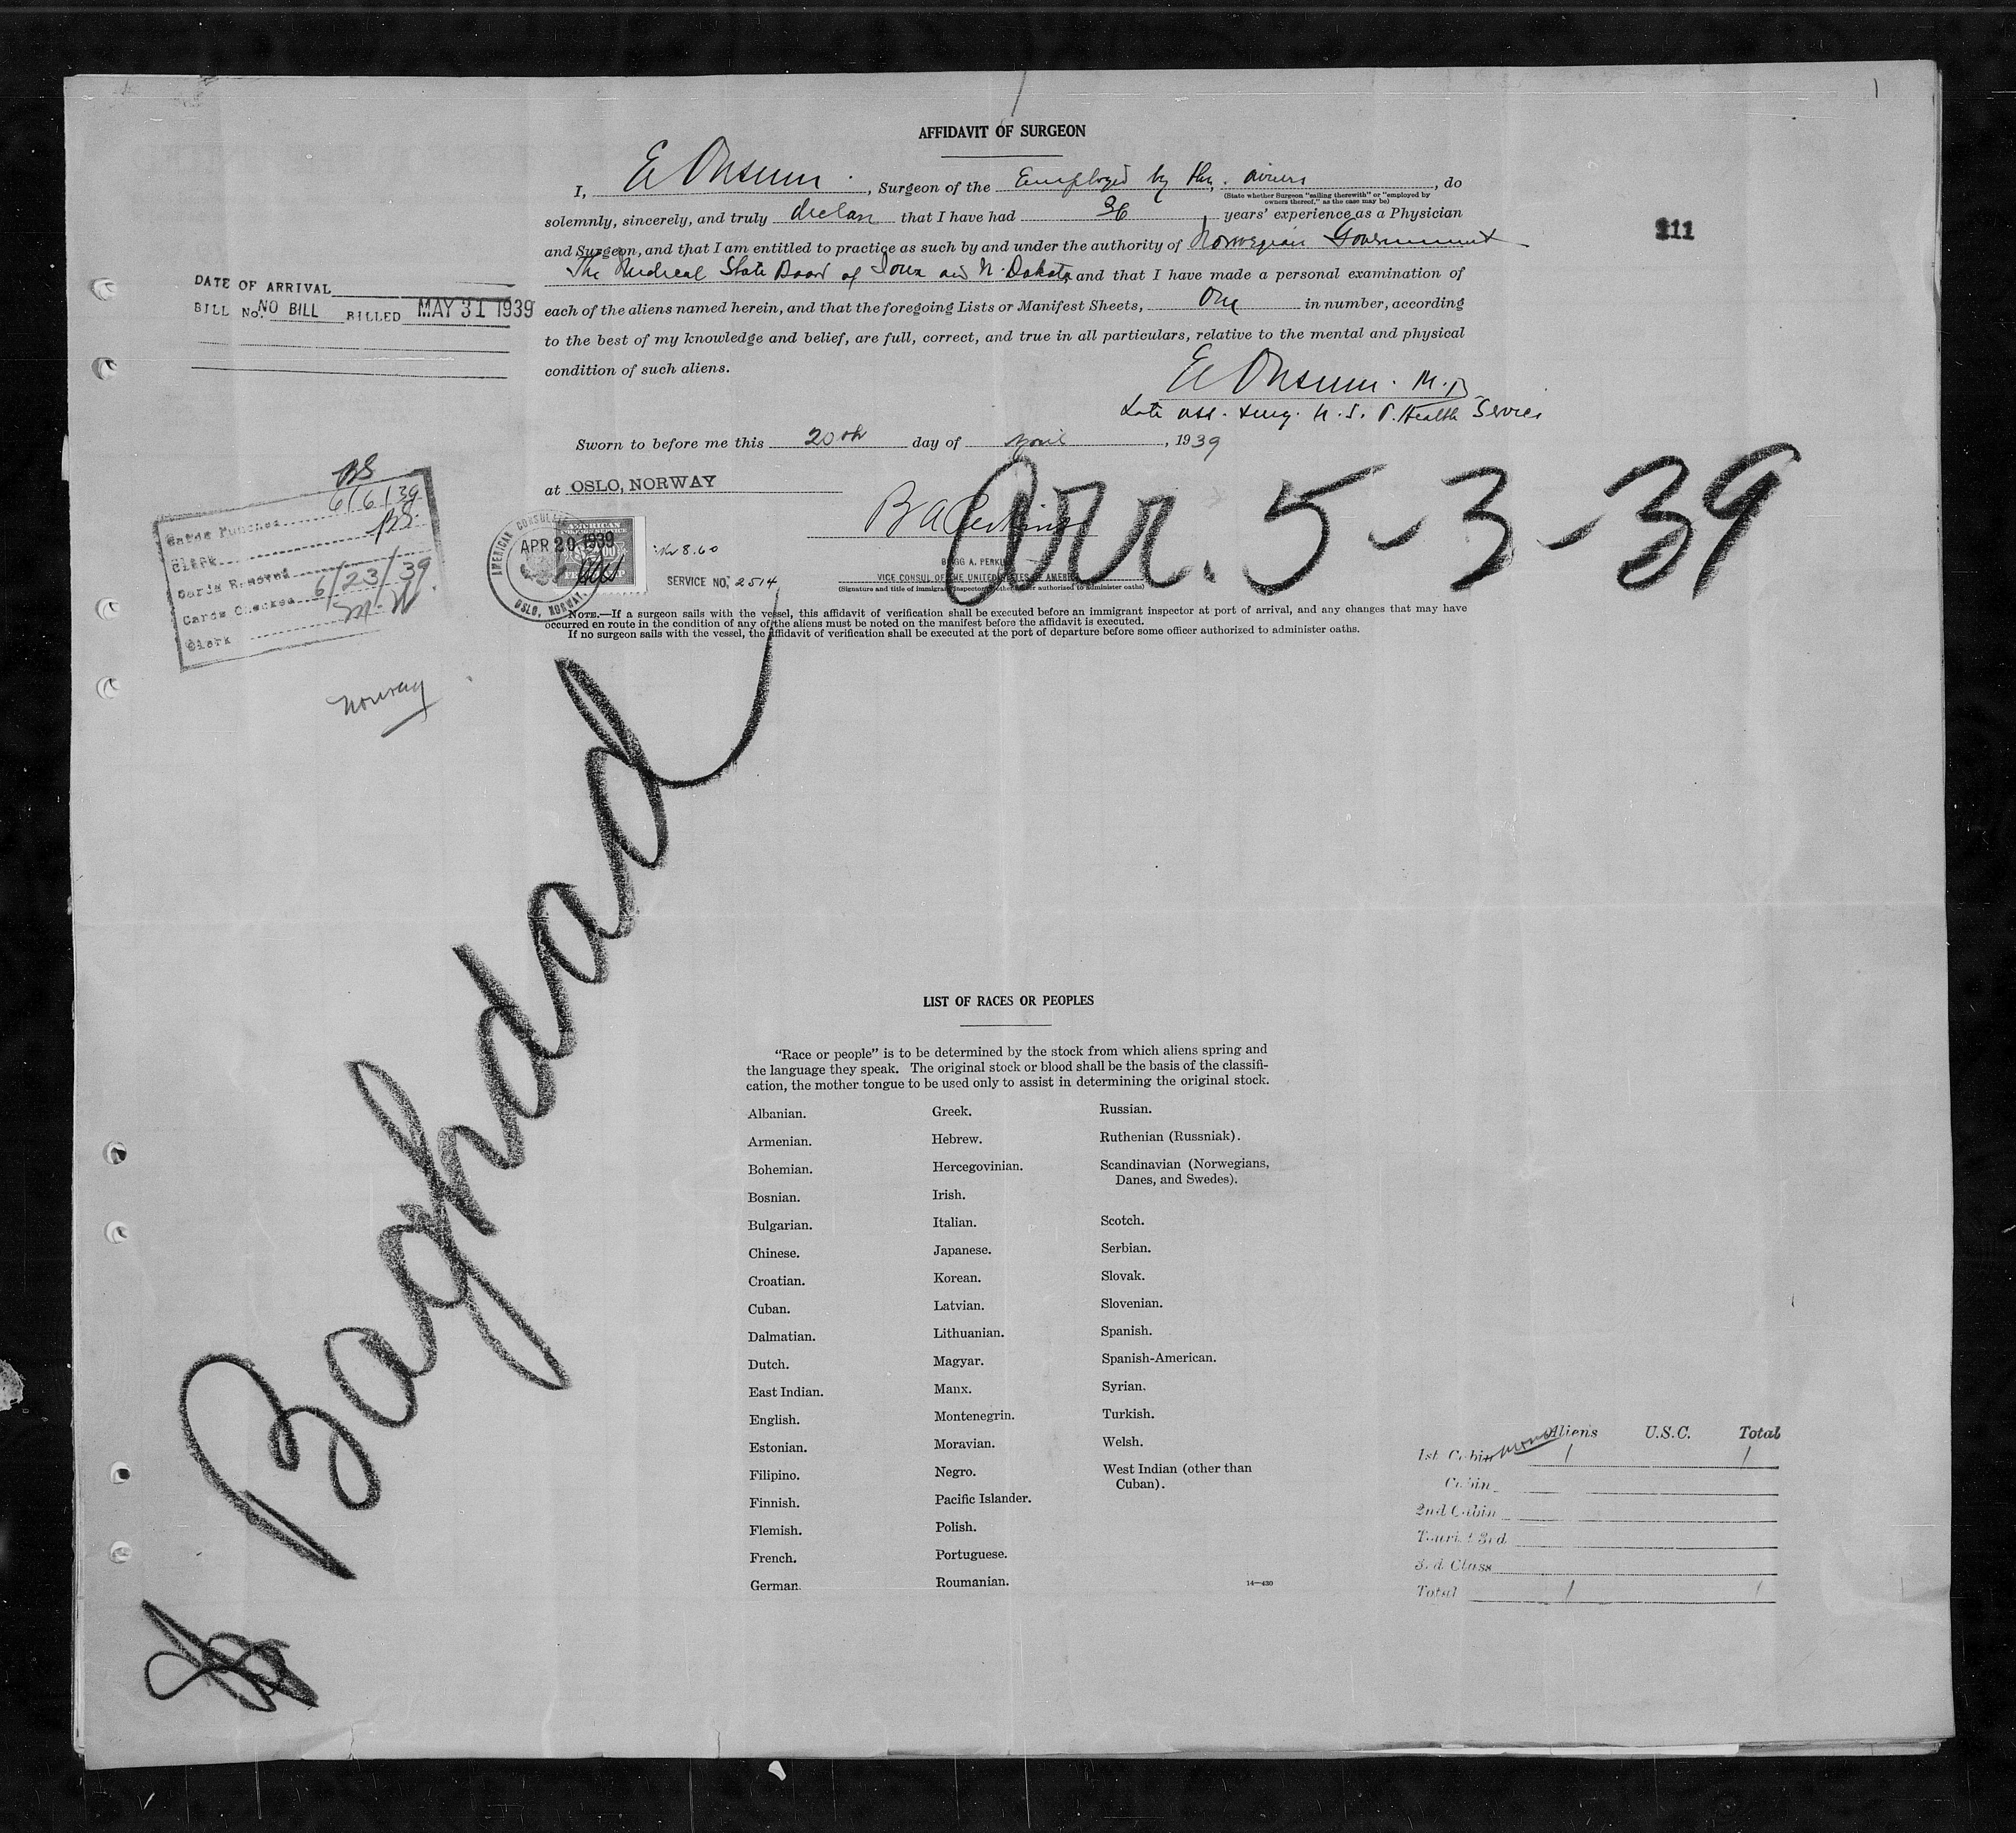 AFFIDAVIT OF SURGEON
I, E Onsum, Surgeon of the Employed by the owners, do
(State whether Surgeon "sailing therewith" or "employed by
owners thereof," as the case may be)
solemnly, sincerely, and truly declare that I have had 36 years' experience as a Physician
and Surgeon, and that I am entitled to practice as such by and under the authority of Norwegian Government
The Medical State Board of Iowa and N. Dakota, and that I have made a personal examination of
each of the aliens named herein, and that the foregoing Lists or Manifest Sheets, One in number, according
to the best of my knowledge and belief, are full, correct, and true in all particulars, relative to the mental and physical
condition of such aliens.
211
DATE OF ARRIVAL
BILL No. NO BILL BILLED MAY 31 1939
E Onsum. M.D
Late ass. surg. U.S. P. Health Service
Sworn to before me this 20th day of April, 1939
at OSLO, NORWAY
B A Perkins
Arr. 5-3-39
BRGG A. PERKINS
VICE CONSUL OF THE UNITED STATES OF AMERICA
AMERICAN CONSULATE
APR 20 1939
OSLO, NORWAY.
AMERICAN
Kr 8.60
SERVICE NO. 2514
NOTE.—If a surgeon sails with the vessel, this affidavit of verification shall be executed before an immigrant inspector at port of arrival, and any changes that may have
occurred en route in the condition of any of the aliens must be noted on the manifest before the affidavit is executed.
If no surgeon sails with the vessel, the affidavit of verification shall be executed at the port of departure before some officer authorized to administer oaths.
BS
Cards Punched 6/6/39
Clerk BS.
Cards Removed
Cards Checked 6/23/39
Clerk M.W.
Norway
Baghdad
LIST OF RACES OR PEOPLES
"Race or people" is to be determined by the stock from which aliens spring and
the language they speak. The original stock or blood shall be the basis of the classifi-
cation, the mother tongue to be used only to assist in determining the original stock.
Albanian.
Armenian.
Bohemian.
Bosnian.
Bulgarian.
Chinese.
Croatian.
Cuban.
Dalmatian.
Dutch.
East Indian.
English.
Estonian.
Filipino.
Finnish.
Flemish.
French.
German.
Greek.
Hebrew.
Hercegovinian.
Irish.
Italian.
Japanese.
Korean.
Latvian.
Lithuanian.
Magyar.
Manx.
Montenegrin.
Moravian.
Negro.
Pacific Islander.
Polish.
Portuguese.
Roumanian.
Russian.
Ruthenian (Russniak).
Scandinavian (Norwegians,
Danes, and Swedes).
Scotch.
Serbian.
Slovak.
Slovenian.
Spanish.
Spanish-American.
Syrian.
Turkish.
Welsh.
West Indian (other than
Cuban).
14—430
Aliens U.S.C. Total
1st Cabin 1 1
Cabin
2nd Cabin
Tourist 3rd
3rd Class
Total 1 1